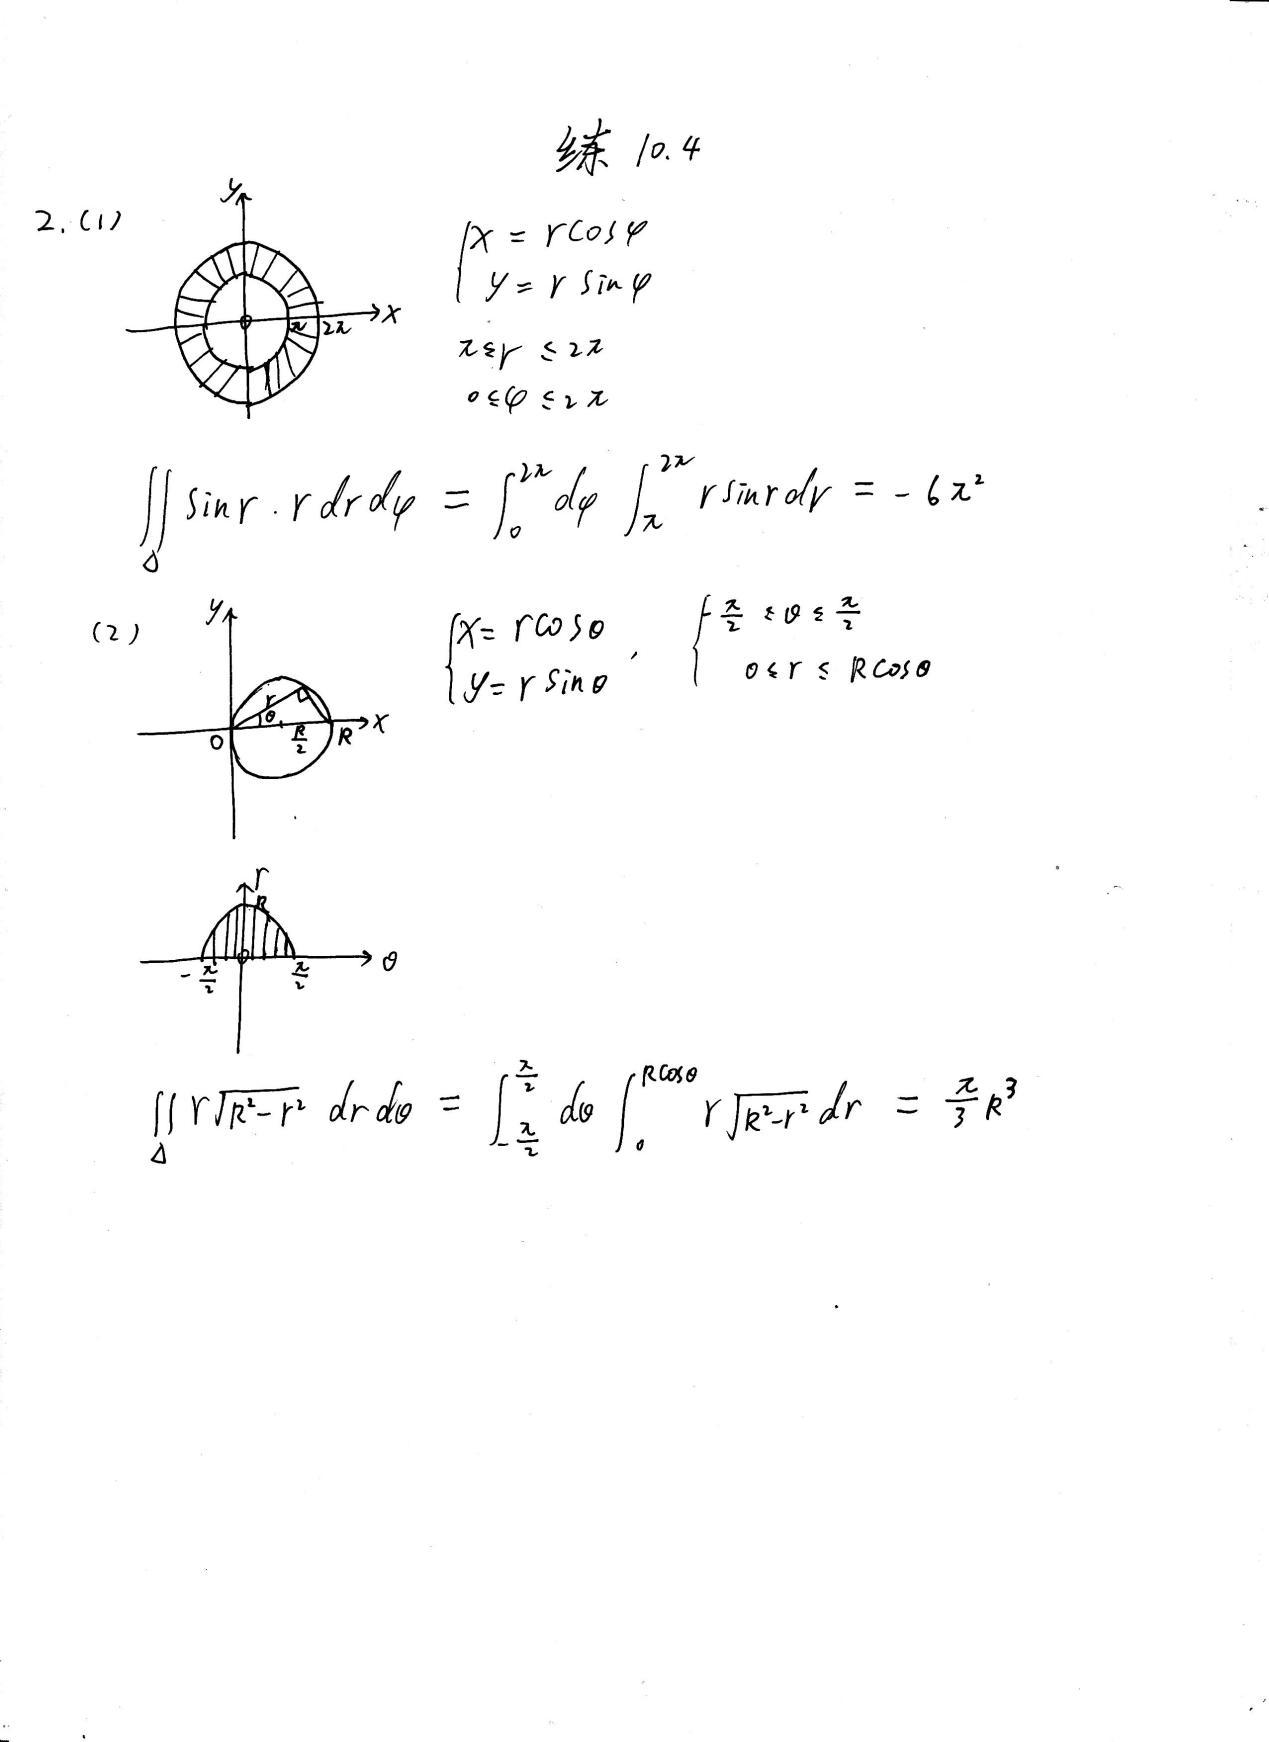 练 10.4
2.(1)
y
x
0
π
2π
{x = rcosφ
y = r sinφ
π≤r ≤2π
0≤φ ≤2π
∬_Δ sinr · r dr dφ = ∫_0^{2π} dφ ∫_π^{2π} r sinr dr = -6π²
(2)
y
x
r
θ
O
R/2
R
{x = rcosθ
y = r sinθ ,
{-π/2 ≤ θ ≤ π/2
0≤r ≤ Rcosθ
r
R
-π/2
0
π/2
θ
∬_Δ r√(R²-r²) dr dθ = ∫_{-π/2}^{π/2} dθ ∫_0^{Rcosθ} r√(R²-r²) dr = π/3 R³